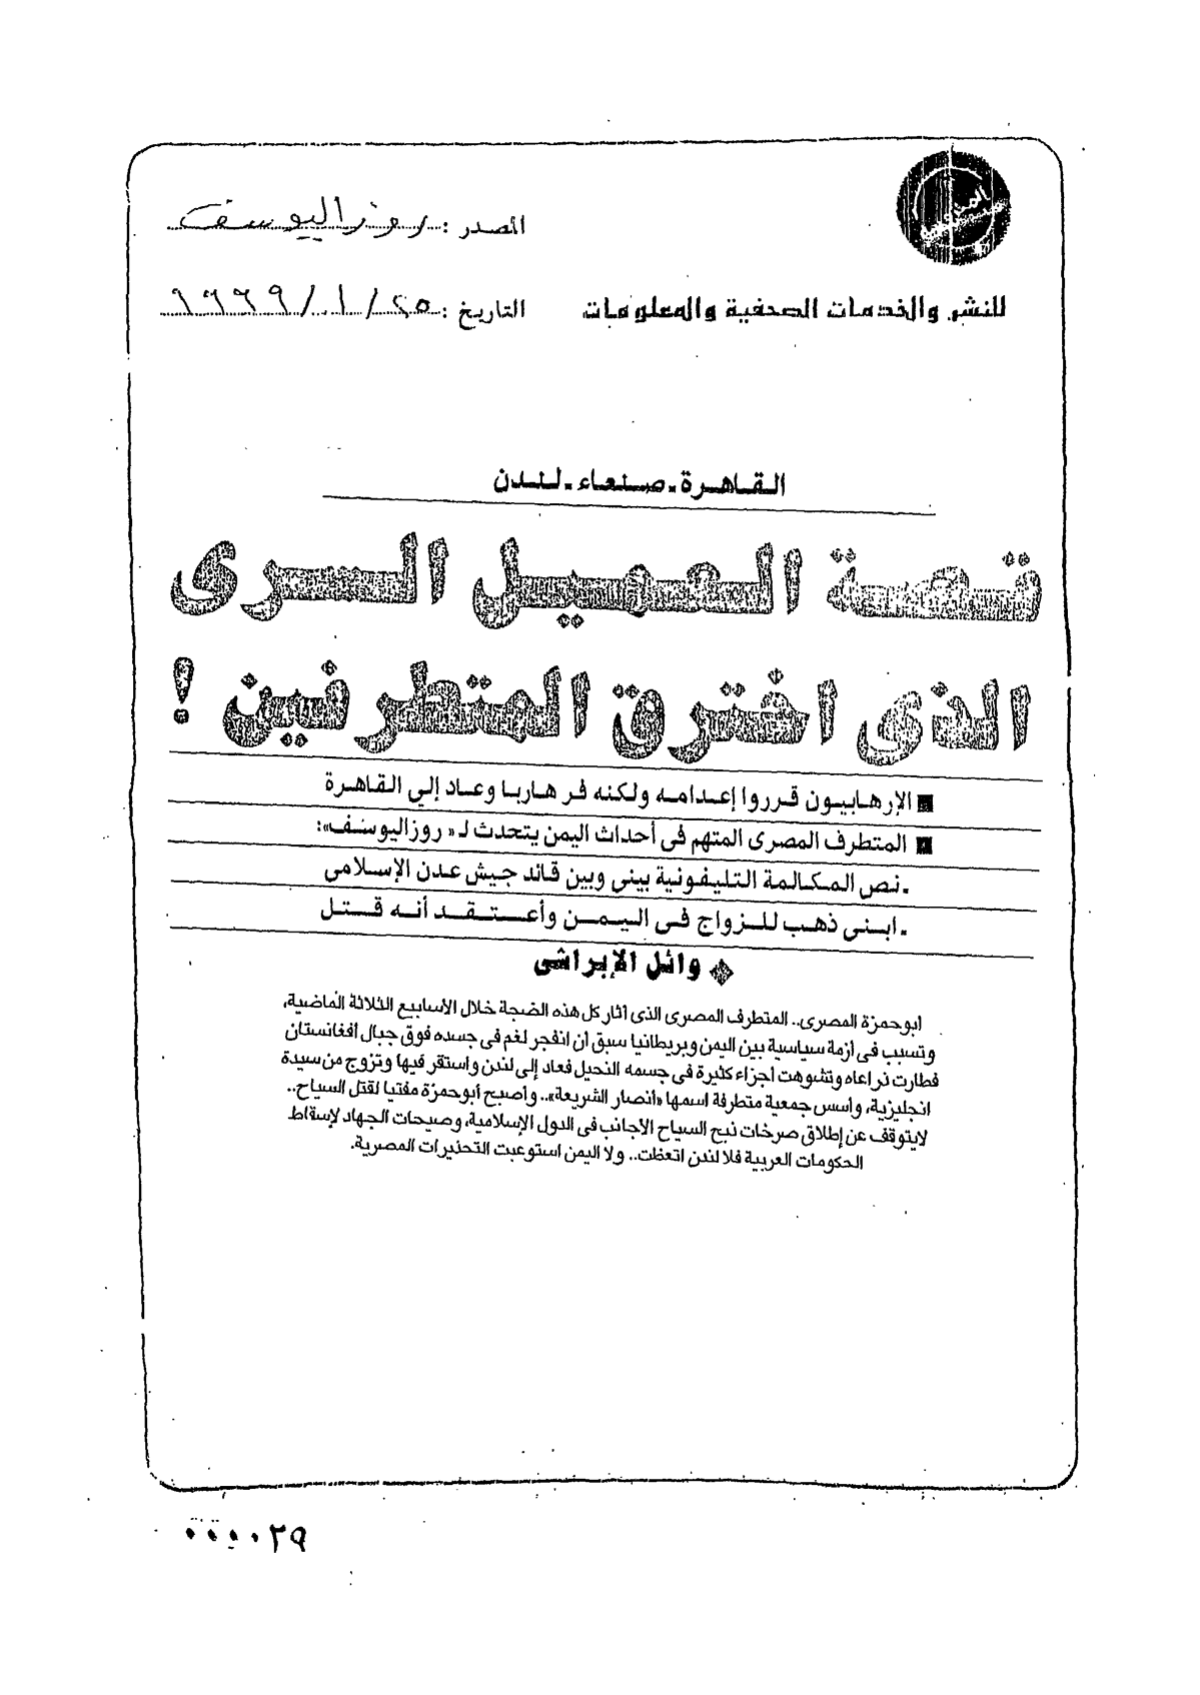 المصدر : روز اليوسف
للنشر والخدمات الصحفية والمعلومات
التاريخ : ٢٥ / ١ / ١٩٩٩
القاهرة - صنعاء - لندن
قصة العميل السرى
الذى اخترق المتطرفين !
■ الإرهابيون قرروا إعدامه ولكنه فر هاربا وعاد إلي القاهرة
■ المتطرف المصرى المتهم فى أحداث اليمن يتحدث لـ « روزاليوسف»:
. نص المكالمة التليفونية بينى وبين قائد جيش عدن الإسلامى
. ابنى ذهب للزواج فى اليمن وأعتقد أنه قتل
وائل الإبراشى
أبوحمزة المصرى.. المتطرف المصرى الذى أثار كل هذه الضجة خلال الأسابيع الثلاثة الماضية،
وتسبب فى أزمة سياسية بين اليمن وبريطانيا سبق أن انفجر لغم فى جسده فوق جبال أفغانستان
فطارت ذراعاه وتشوهت أجزاء كثيرة فى جسمه النحيل فعاد إلى لندن واستقر فيها وتزوج من سيدة
انجليزية، وأسس جمعية متطرفة اسمها «أنصار الشريعة».. وأصبح أبوحمزة مفتيا لقتل السياح..
لايتوقف عن إطلاق صرخات ذبح السياح الأجانب فى الدول الإسلامية، وصيحات الجهاد لإسقاط
الحكومات العربية فلا لندن اتعظت.. ولا اليمن استوعبت التحذيرات المصرية.
٠٠٠٠٢٩